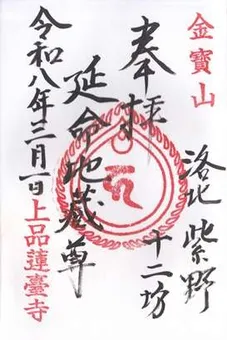 金寶山
洛北 紫野
十二坊
奉拝
延命地蔵尊
令和八年三月一日
上品蓮臺寺